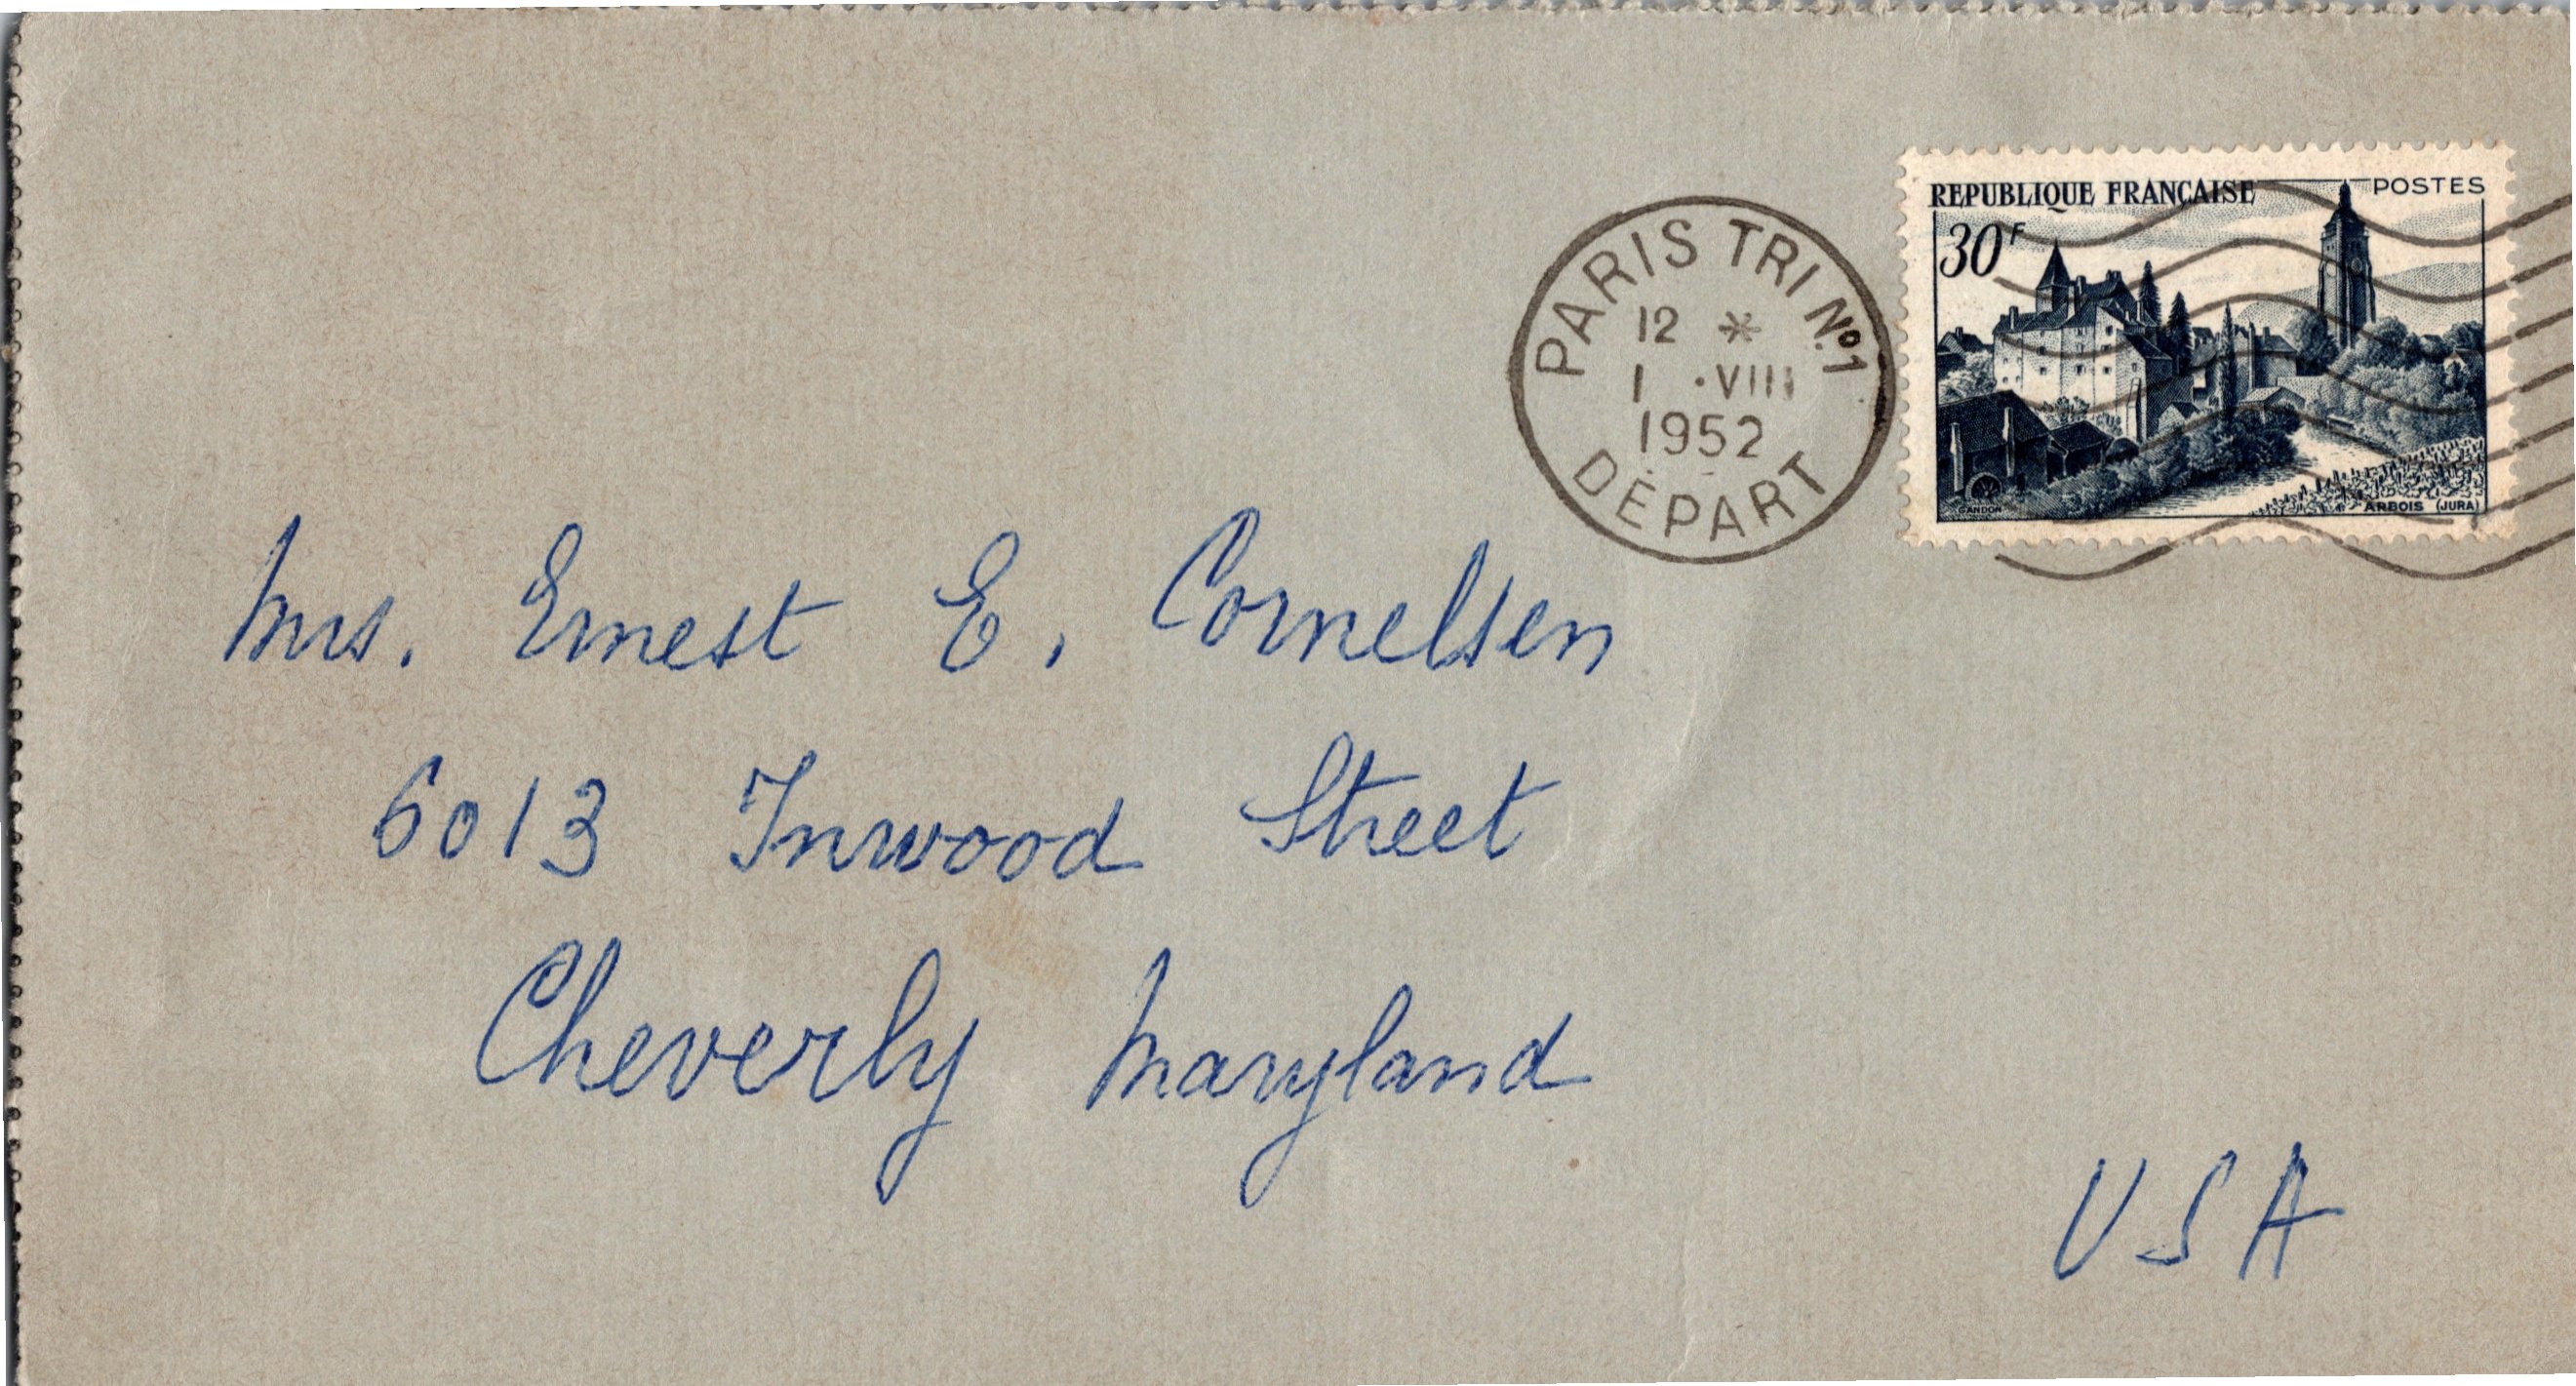 REPUBLIQUE FRANÇAISE POSTES
30F
GANDON
ARBOIS (JURA)
PARIS TRI Nº1
12 *
1 •VIII
1952
DÉPART
Mrs. Ernest E. Cornelsen
6013 Inwood Street
Cheverly Maryland
USA